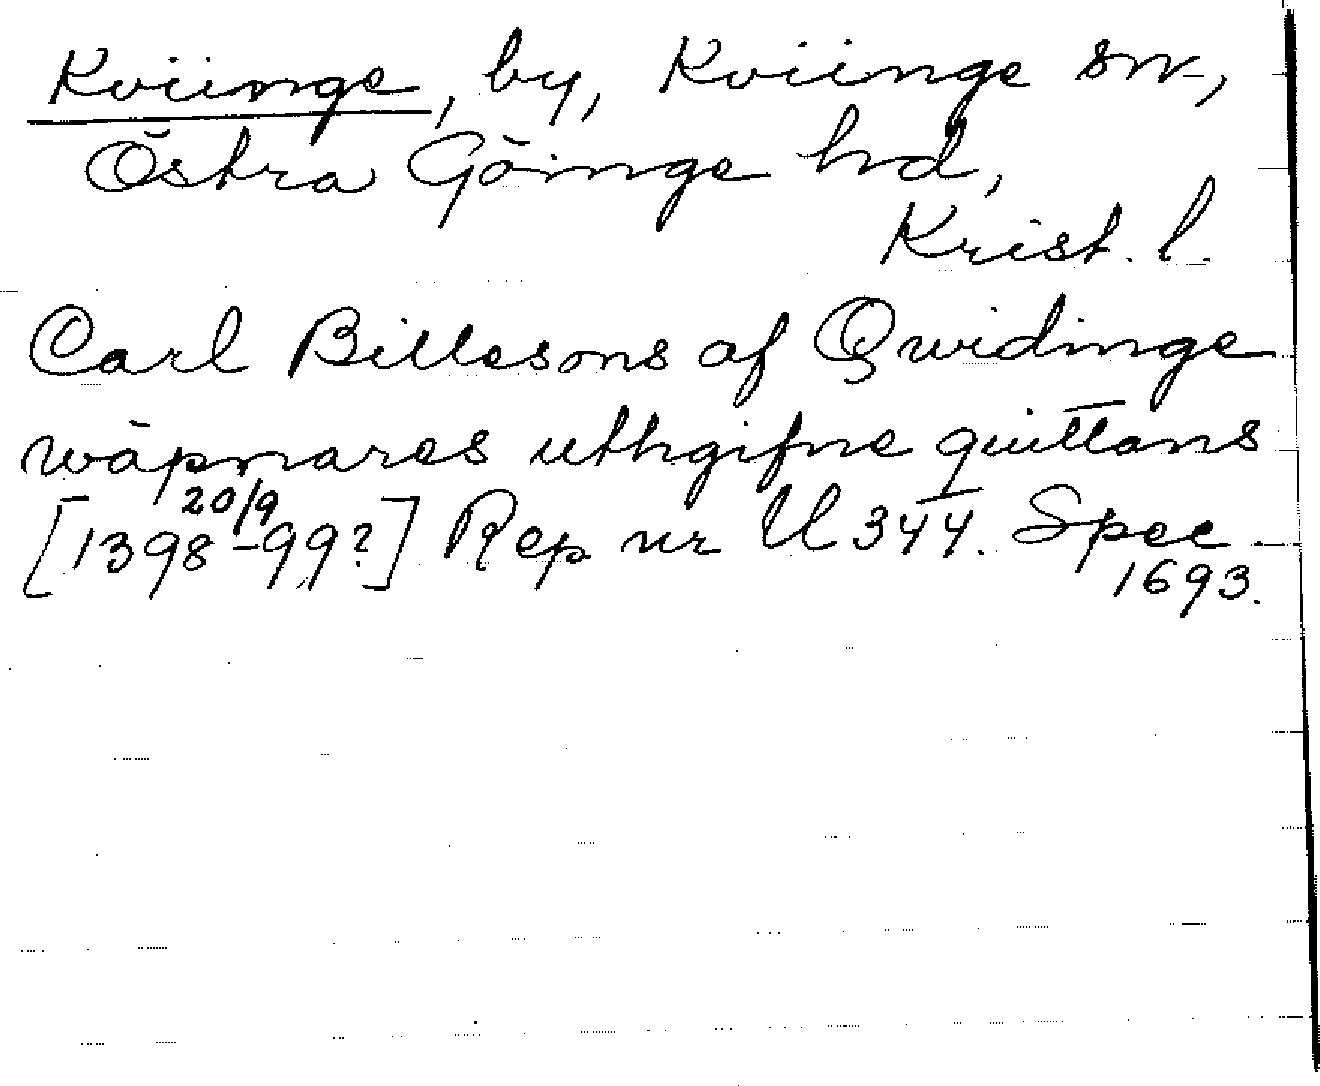 Kviinge, by, Kviinge sn,
Östra Göinge hd,
Krist. l.
Carl Billesons af Qwidinge
wäpnares uthgifne quittans
20/9
[1398-99?] Rep nr U 344. Spec
1693.